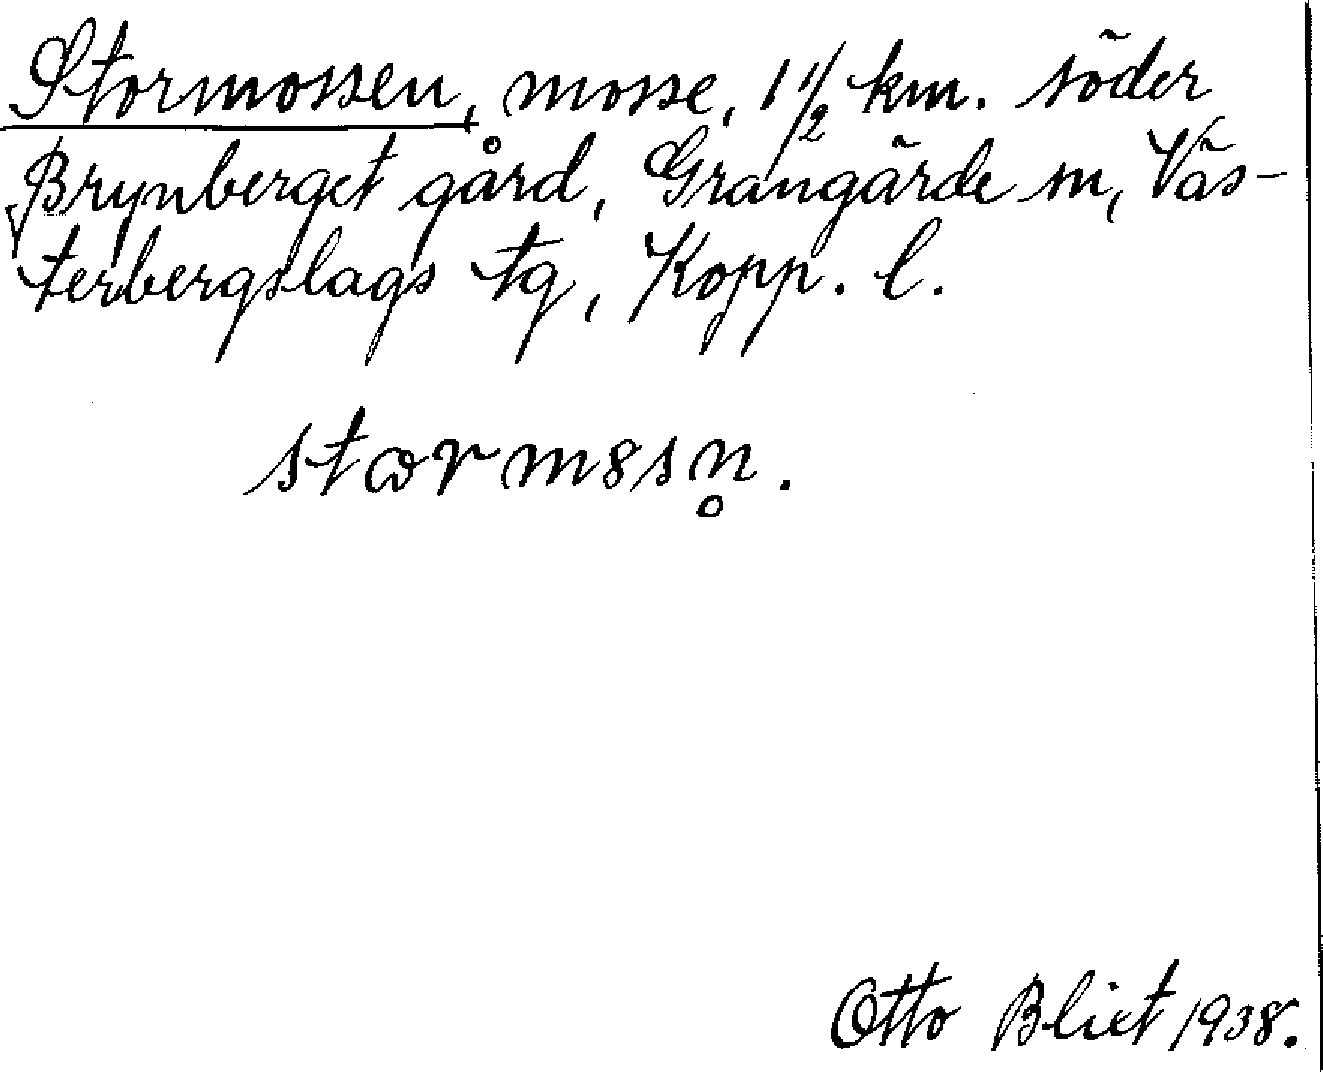 Stormossen, mosse, 1 1/2 km. söder
Brynberget gård, Grangärde sn, Väs-
terbergslags tg, Kopp. l.
stɷrm8sn̥.
Otto Blixt 1938.